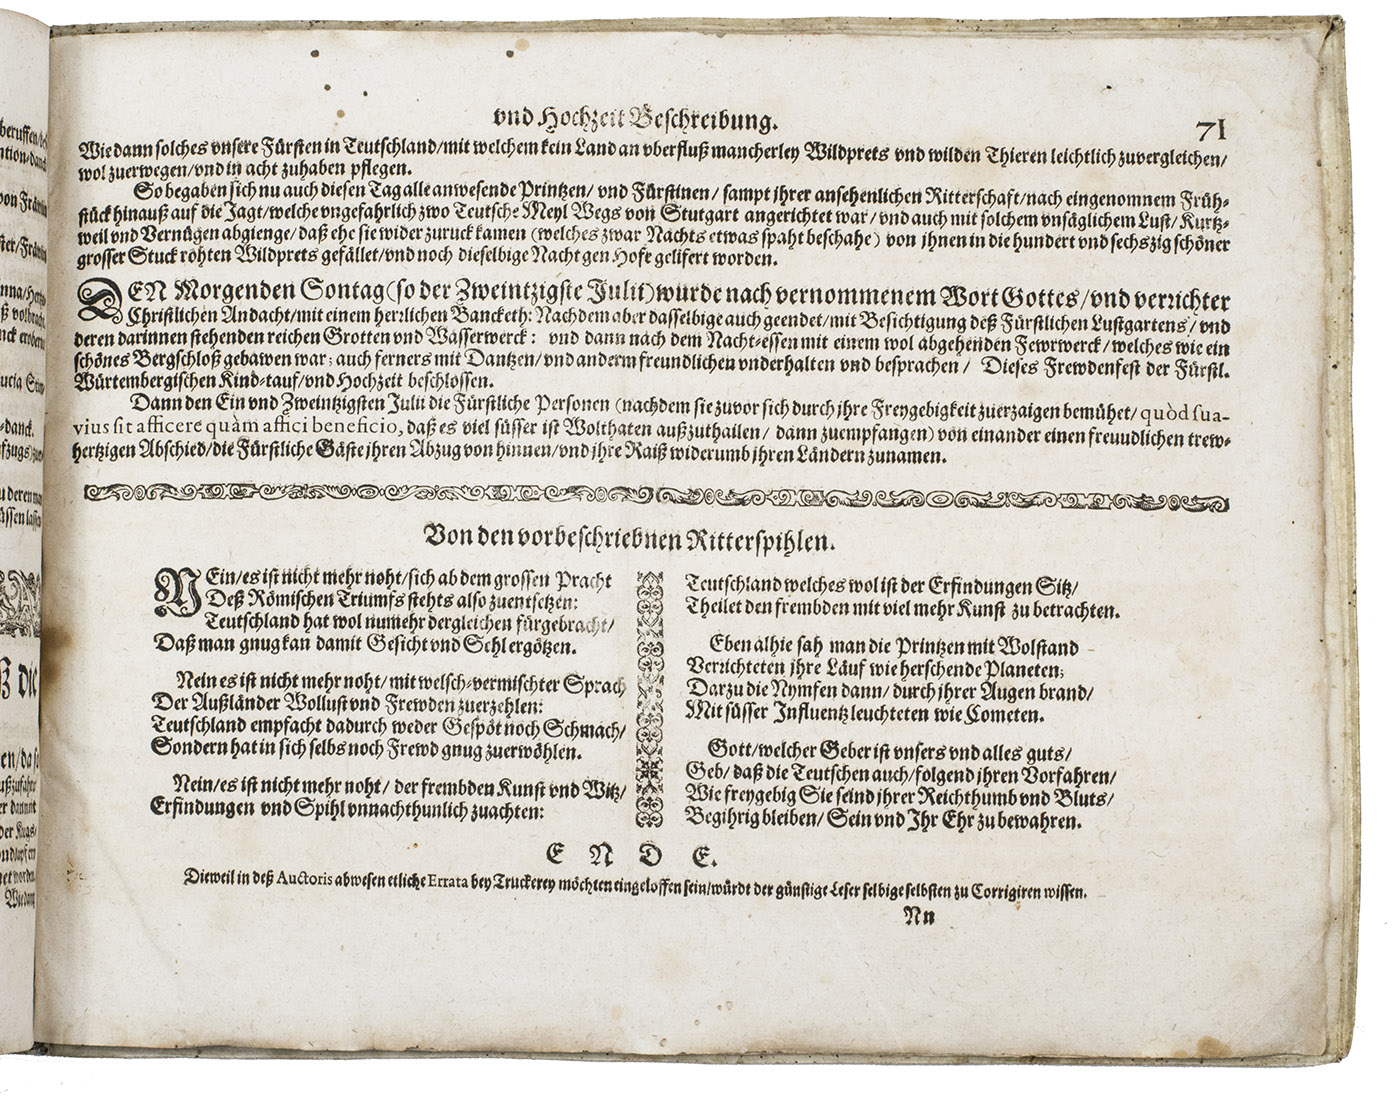 vnd Hochzeit Beschreibung.
71
Wie dann solches vnsere Fürsten in Teutschland/mit welchem kein Land an vberfluß mancherley Wildprets vnd wilden Thieren leichtlich zuvergleichen/
wol zuerwegen/vnd in acht zuhaben pflegen.
So begaben sich nu auch diesen Tag alle anwesende Printzen/ vnd Fürstinen/ sampt ihrer ansehenlichen Ritterschaft/nach eingenomnem Früh-
stück hinauß auf die Jagt/welche vngefahrlich zwo Teutsche Meyl Wegs von Stutgart angerichtet war/ vnd auch mit solchem vnsäglichem Lust/ Kurtz-
weil vnd Vernügen abgienge/ daß ehe sie wider zuruck kamen (welches zwar Nachts etwas spaht beschahe) von jhnen in die hundert vnd sechszig schöner
grosser Stuck rohten Wildprets gefället/vnd noch dieselbige Nacht gen Hofe gelifert worden.
DEN Morgenden Sontag (so der Zweintzigste Julii) wurde nach vernommenem Wort Gottes/vnd verrichter
Christlichen Andacht/mit einem herrlichen Bancketh: Nachdem aber dasselbige auch geendet/mit Besichtigung deß Fürstlichen Lustgartens/ vnd
deren darinnen stehenden reichen Grotten vnd Wasserwerck: vnd dann nach dem Nacht-essen mit einem wol abgehenden Fewrwerck/welches wie ein
schönes Bergschloß gebawen war; auch ferners mit Dantzen/vnd anderm freundlichen vnderhalten vnd besprachen/ Dieses Frewdenfest der Fürstl.
Würtembergischen Kind-tauf/vnd Hochzeit beschlossen.
Dann den Ein vnd Zweintzigsten Julii die Fürstliche Personen (nachdem sie zuvor sich durch jhre Freygebigkeit zuerzaigen bemühet/ quòd sua-
vius sit afficere quàm affici beneficio, daß es viel süsser ist Wolthaten außzuthailen/ dann zuempfangen) von einander einen freuudlichen trew-
hertzigen Abschied/die Fürstliche Gäste jhren Abzug von hinnen/vnd jhre Raiß widerumb jhren Ländern zunamen.
Von den vorbeschriebnen Ritterspihlen.
NEin/es ist nicht mehr noht/sich ab dem grossen Pracht
Deß Römischen Triumfs stehts also zuentsetzen:
Teutschland hat wol numehr dergleichen fürgebracht/
Daß man gnug kan damit Gesicht vnd Sehl ergötzen.
Nein es ist nicht mehr noht/ mit welsch-vermischter Sprach
Der Außländer Wollust vnd Frewden zuerzehlen:
Teutschland empfacht dadurch weder Gespöt noch Schmach/
Sondern hat in sich selbs noch Frewd gnug zuerwöhlen.
Nein/es ist nicht mehr noht/ der frembden Kunst vnd Witz/
Erfindungen vnd Spihl vnnachthunlich zuachten:
Teutschland welches wol ist der Erfindungen Sitz/
Theilet den frembden mit viel mehr Kunst zu betrachten.
Eben alhie sah man die Printzen mit Wolstand
Verrichteten jhre Läuf wie herschende Planeten;
Darzu die Nymfen dann/ durch jhrer Augen brand/
Mit süsser Influentz leuchteten wie Cometen.
Gott/welcher Geber ist vnsers vnd alles guts/
Geb/ daß die Teutschen auch/folgend jhren Vorfahren/
Wie freygebig Sie seind jhrer Reichthumb vnd Bluts/
Begihrig bleiben/ Sein vnd Ihr Ehr zu bewahren.
E N D E.
Dieweil in deß Auctoris abwesen etliche Errata bey Truckerey möchten eingeloffen sein/würdt der günstige Leser selbige selbsten zu Corrigiren wissen.
Nn